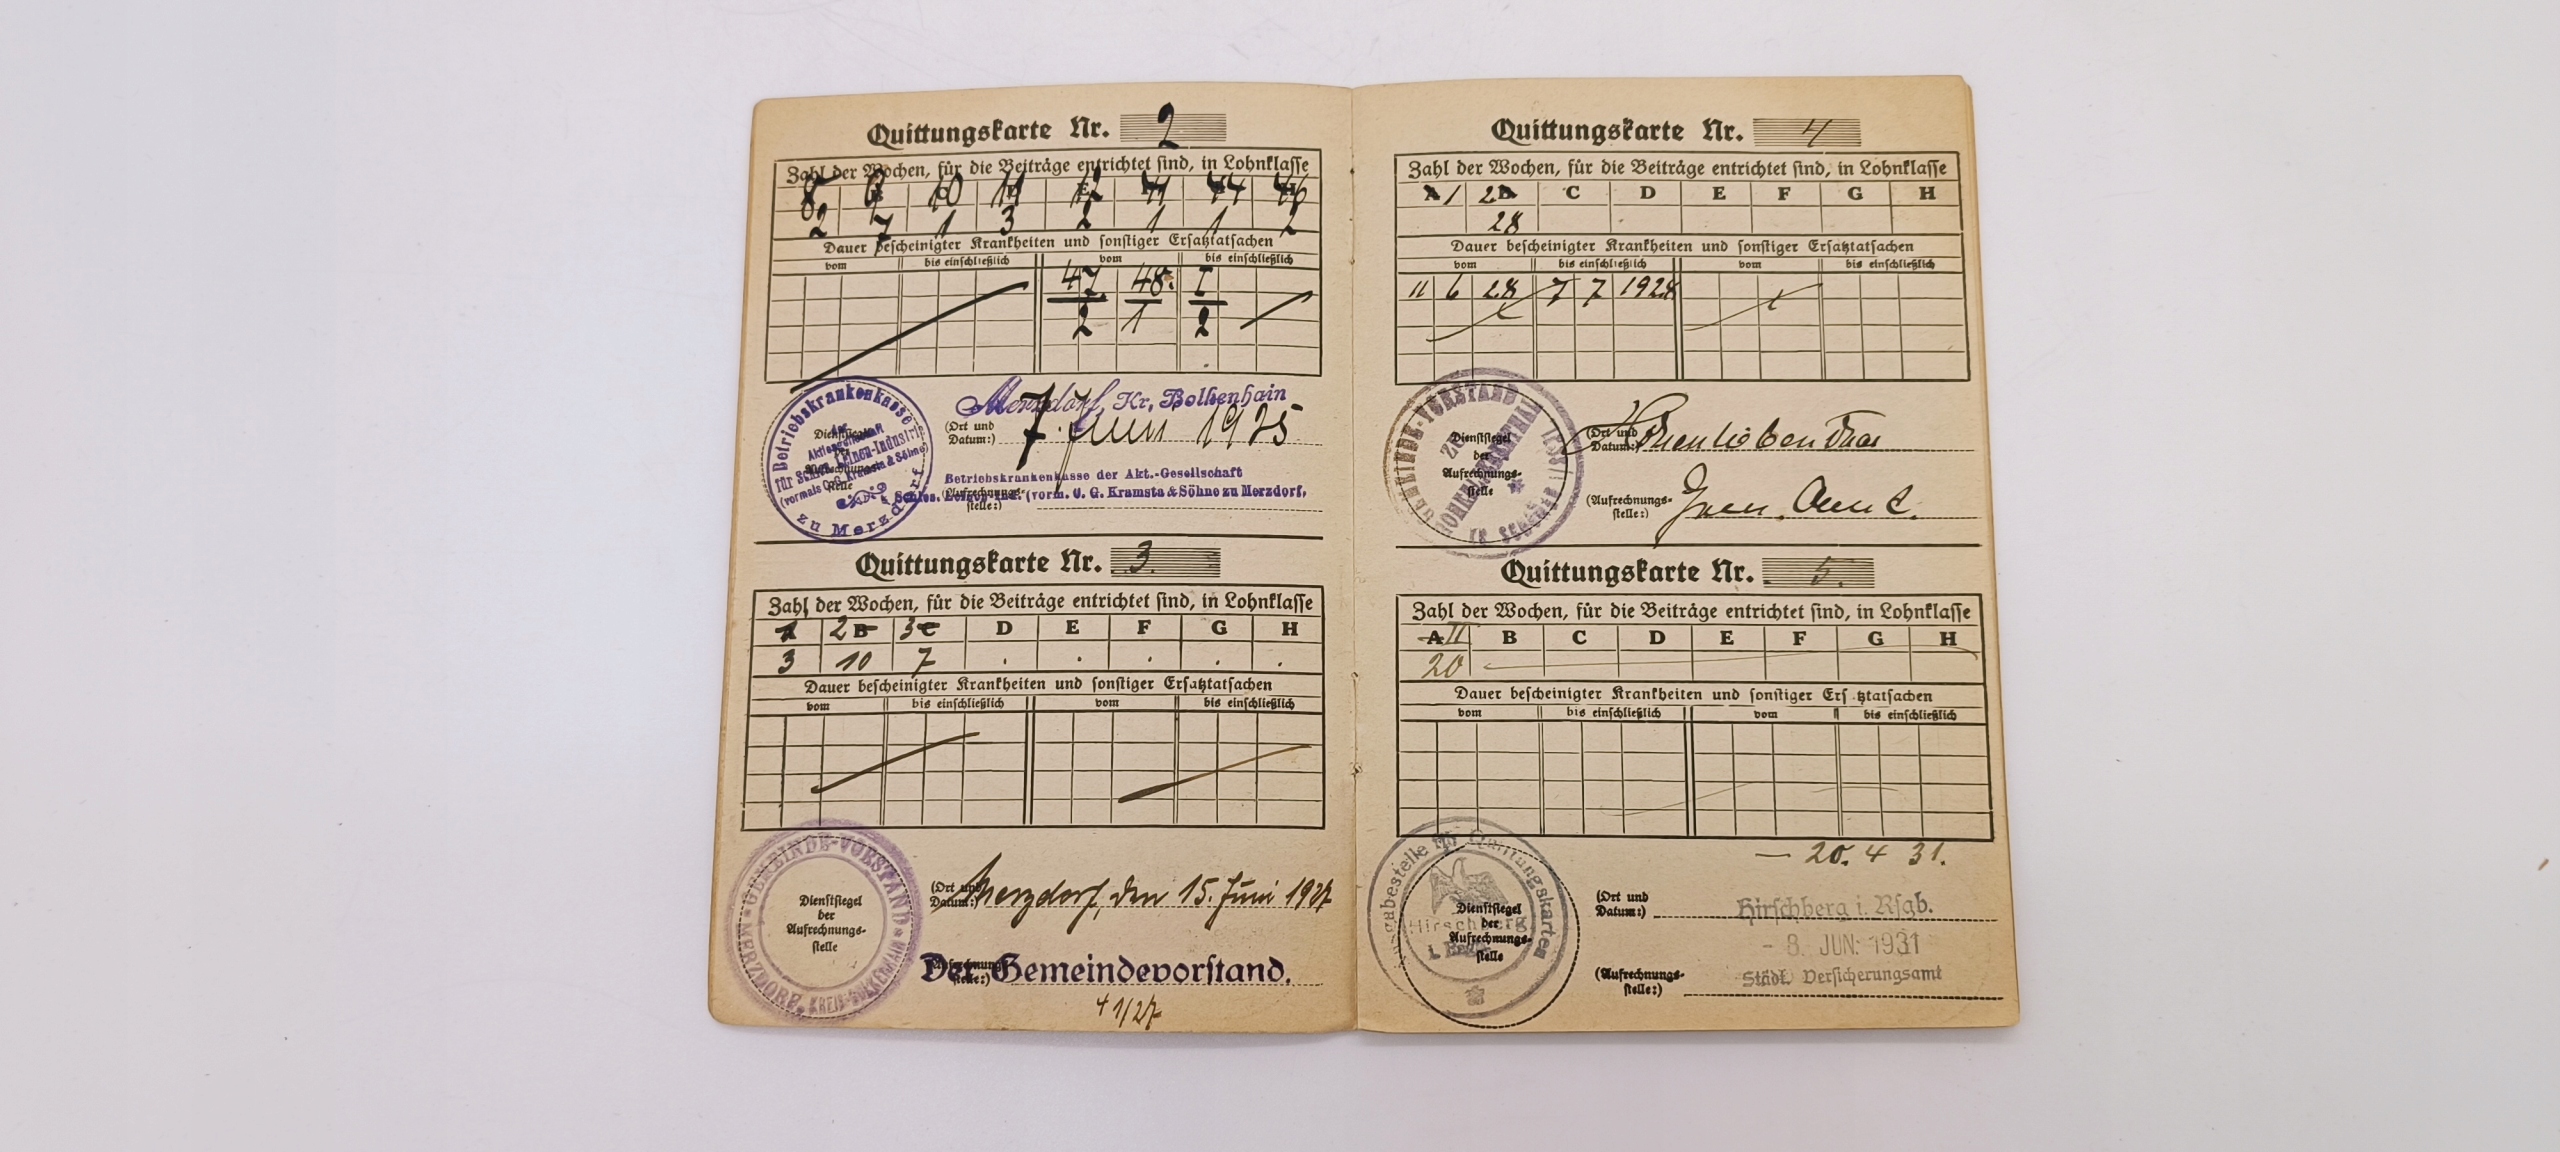 Quittungskarte Nr. 2
Zahl der Wochen, für die Beiträge entrichtet sind, in Lohnklasse
8 10 11 12 44
2 7 1 3 2 1 1 2
Dauer bescheinigter Krankheiten und sonstiger Ersatztatsachen
vom bis einschließlich vom bis einschließlich
47 48. I
2 1 2
Merzdorf, Kr. Bolkenhain
(Ort und
Datum:) 7. Juni 1925
Betriebskrankenkasse der Akt.-Gesellschaft
Schles. Leinen-Ind. (vorm. C. G. Kramsta & Söhne zu Merzdorf,
(Aufrechnungs-
stelle:)
Betriebskrankenkasse
der
Aktiengesellschaft
für Schles. Leinen-Industrie
(vormals C. G. Kramsta & Söhne)
zu Merzdorf
Dienstsiegel
der
Aufrechnungs-
stelle
Quittungskarte Nr. 3.
Zahl der Wochen, für die Beiträge entrichtet sind, in Lohnklasse
A 2 B 3 C D E F G H
3 10 7 . . . . .
Dauer bescheinigter Krankheiten und sonstiger Ersatztatsachen
vom bis einschließlich vom bis einschließlich
GEMEINDE-VORSTAND
MERZDORF, KREIS BOLKENHAIN
Dienstsiegel
der
Aufrechnungs-
stelle
(Ort und
Datum:) Merzdorf, den 15. Juni 1927
(Aufrechnungs-
stelle:) Der Gemeindevorstand.
4 1/27
Quittungskarte Nr. 4
Zahl der Wochen, für die Beiträge entrichtet sind, in Lohnklasse
A 1 2 B C D E F G H
28
Dauer bescheinigter Krankheiten und sonstiger Ersatztatsachen
vom bis einschließlich vom bis einschließlich
11 6 28 7 7 1928
GEMEINDE-VORSTAND
ZU
HOHENLIEBENTHAL
Dienstsiegel
der
Aufrechnungs-
stelle
(Ort und
Datum:) Hohenliebenthal
(Aufrechnungs-
stelle:)
Quittungskarte Nr. 5.
Zahl der Wochen, für die Beiträge entrichtet sind, in Lohnklasse
A II B C D E F G H
20
Dauer bescheinigter Krankheiten und sonstiger Ers tztatsachen
vom bis einschließlich vom bis einschließlich
– 20. 4 31.
Ausgabestelle für Quittungskarten
Hirschberg
i. Rsgb.
Dienstsiegel
der
Aufrechnungs-
stelle
(Ort und
Datum:) Hirschberg i. Rsgb.
- 8. JUN. 1931
(Aufrechnungs-
stelle:) Städt. Versicherungsamt